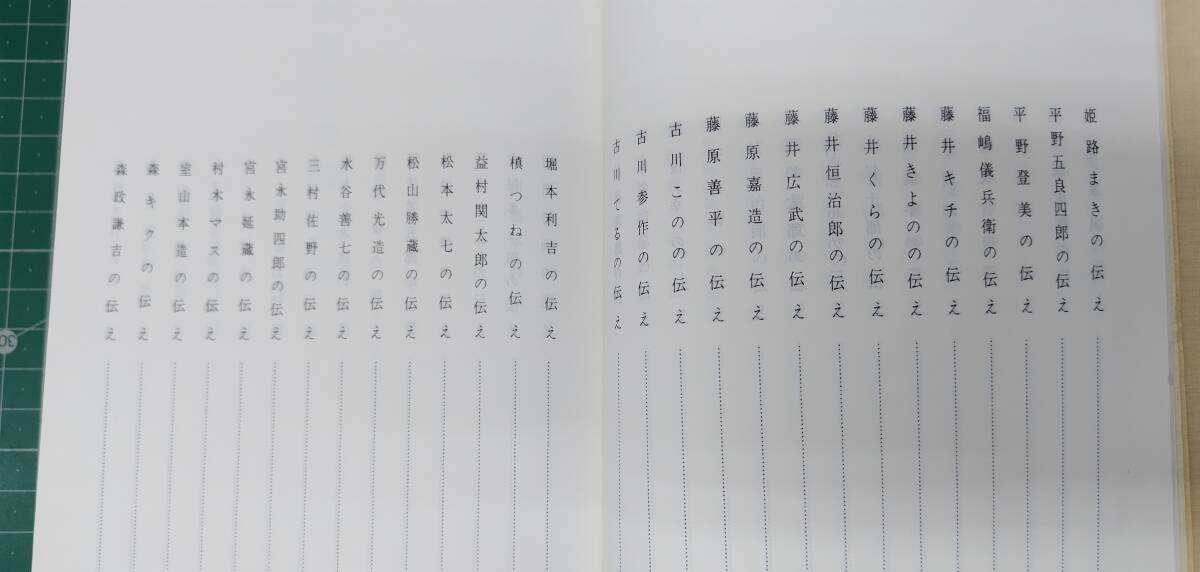 姫路まきの伝え
平野五良四郎の伝え
平野登美の伝え
福嶋儀兵衛の伝え
藤井キチの伝え
藤井きよのの伝え
藤井くらの伝え
藤井恒治郎の伝え
藤井広武の伝え
藤原嘉造の伝え
藤原善平の伝え
古川このの伝え
古川参作の伝え
古川てるの伝え
堀本利吉の伝え
槙つねの伝え
益村関太郎の伝え
松本太七の伝え
松山勝蔵の伝え
万代光造の伝え
水谷善七の伝え
三村佐野の伝え
宮永助四郎の伝え
宮永延蔵の伝え
村木マスの伝え
室山本造の伝え
森キクの伝え
森政謙吉の伝え
30